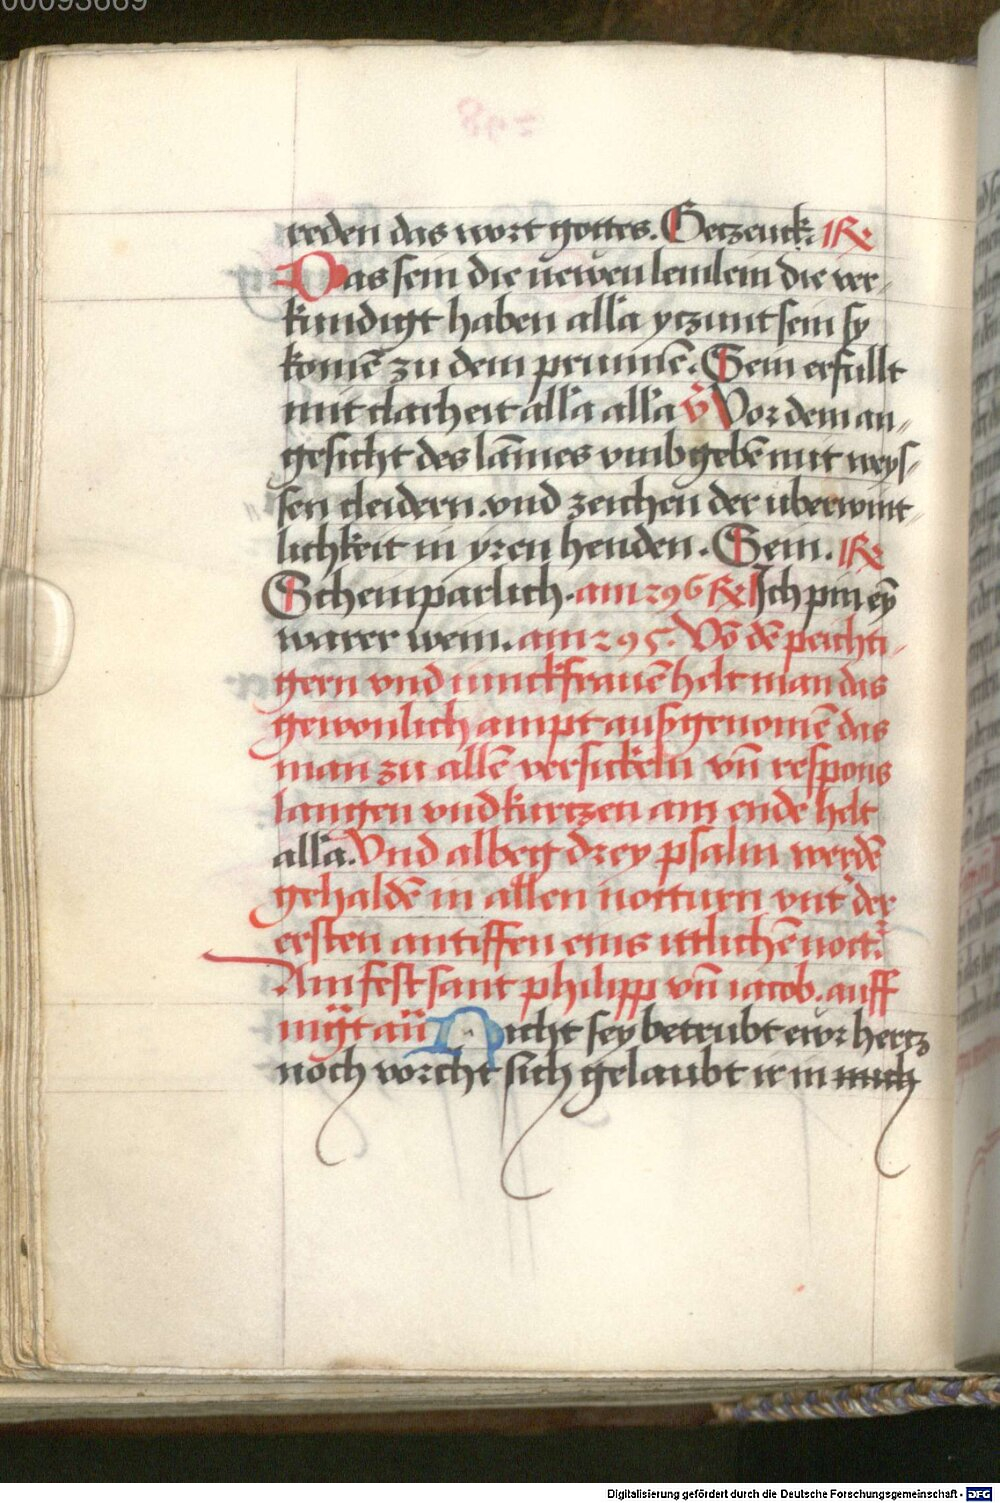 00093669
reden das wort gottes. Getzeuck. R
Das sein die newen lemlein die ver-
kundigt haben alla yczunt sein sy
komē zu dem prunnē. Sein erfullt
mit clarheit alla alla V Vor dem an-
gesicht des lāmes vmbgebē mit weys-
sen cleidern. vnd zeichen der uberwint-
lichkeit in yren henden. Sein. R
Scheinparlich. am 296 R Ich pin eȳ
warer wein. am 295. Vō dē peichti-
gern vnd iunckfrauē helt man das
gewonlich ampt außgenomē das
man zu allē versickeln vn̄ respons
langen vnd kurtzen am ende helt
alla. Vnd albeg drey psalm werdē
gehaldē in allen notturn vnt der
ersten antiffen eins ittlichē noct.
Am fest sant philipp vn̄ iacob. auff
mגt
Nicht sey betrubt ewr hertz
noch vorcht sich gelaubt ir in mich
Digitalisierung gefördert durch die Deutsche Forschungsgemeinschaft - DFG